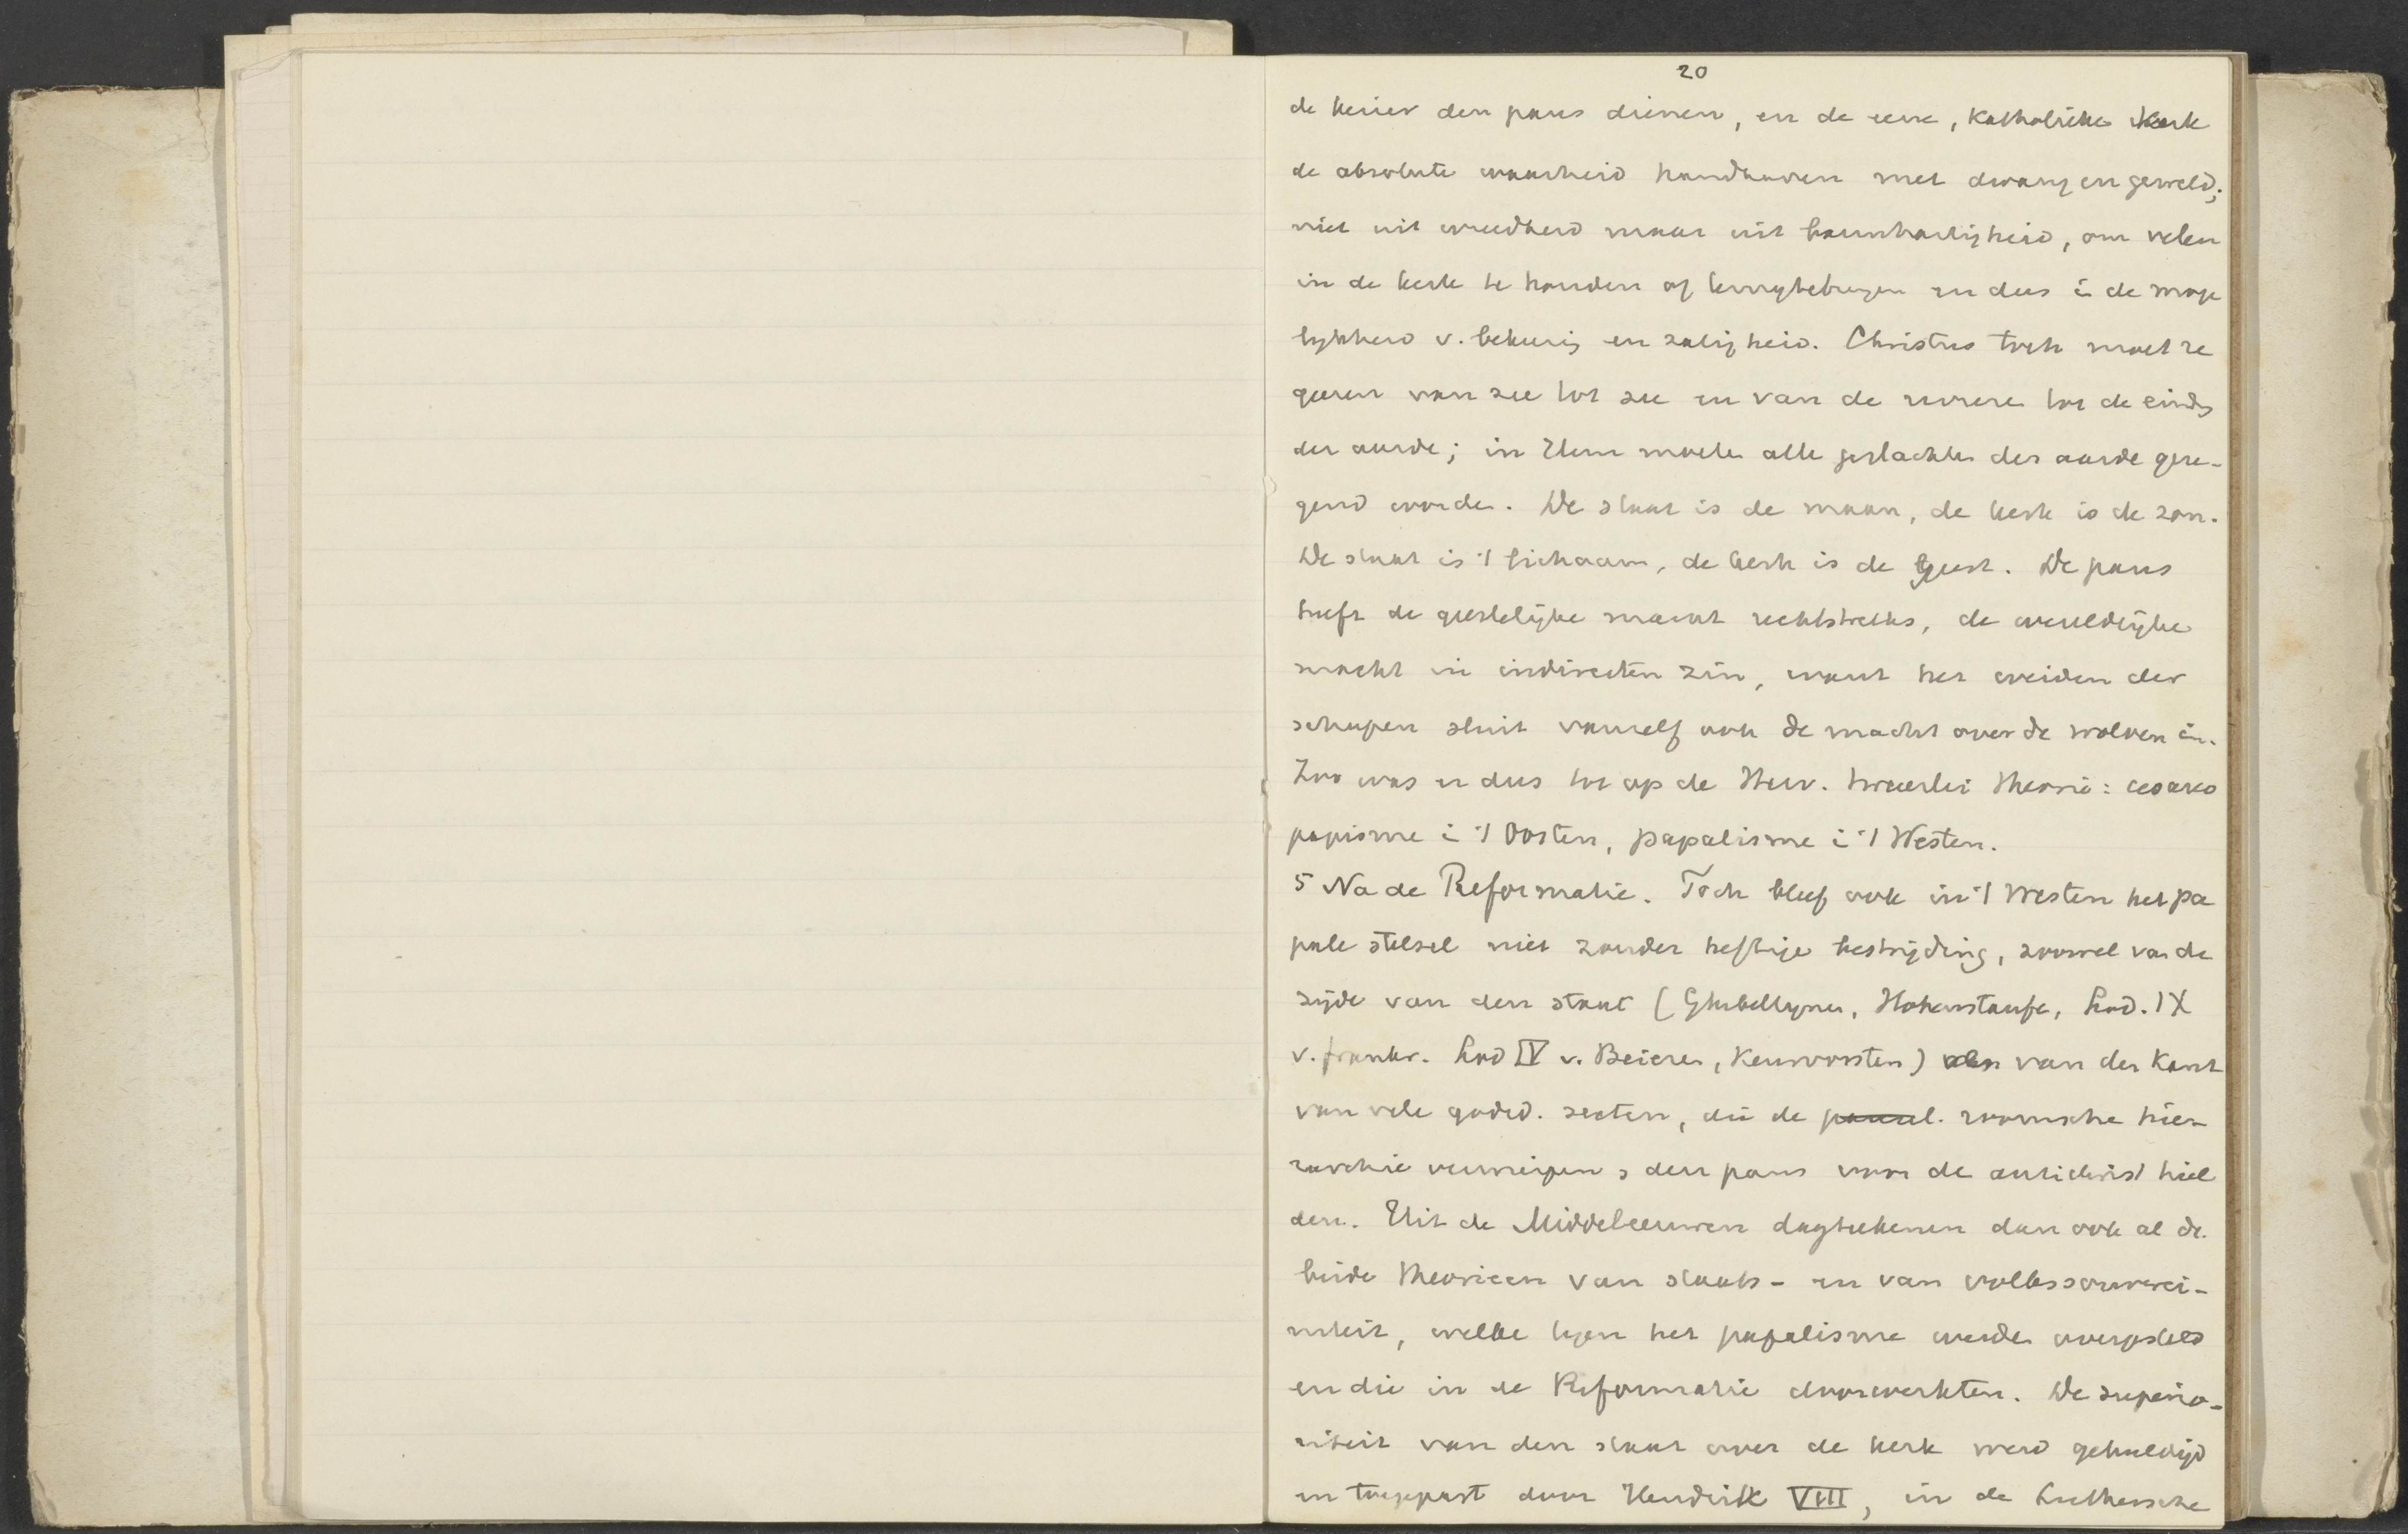 20
de keizer den paus dienen, en de eene, katholieke Kerk
de absolute waarheid handhaven met dwang en geweld;
niet uit wreedheid maar uit barmhartigheid, om velen
in de kerk te houden of terugtebrengen en dus i de moge
lykheid v. bekeerig en zaligheid. Christus toch moet re
geeren van zee tot zee en van de riviere tot de einds
der aarde; in Hem moete alle geslachte der aarde geze-
gend worde. De staat is de maan, de kerk is de zon.
De staat is 't lichaam, de kerk is de geest. De paus
heeft de geestelijke macht rechtstreeks, de wereldlijke
macht in indirecten zin, want het weiden der
schapen sluit vanzelf ook de macht over de wolven in.
Zoo was er dus tot op de Herv. tweeerlei theorie: cesaro
papisme i 't Oosten, papalisme i 't Westen.
5 Na de Reformatie. Toch bleef ook in 't Westen het pa
pale stelsel niet zonder heftige bestrijding, zoowel van de
zijde van den staat (Ghibellynen, Hohenstaufe, Lod. IX
v. frankr. Lod IV v. Beieren, Keurvorsten) als van den Kant
van vele godsd. secten, die de roomsche hier-
rarchie verwierpen, den paus voor de antichrist hiel
den. Uit de Middeleeuwen dagteekenen dan ook al de
beide theorieen van staats- en van volkssouverei-
niteit, welke tegen het papalisme werde overgesteld
en die in de Reformatie doorwerkten. De superio-
riteit van den staat over de kerk werd gehuldigd
en toegepast door Hendrik VIII, in de Luthersche